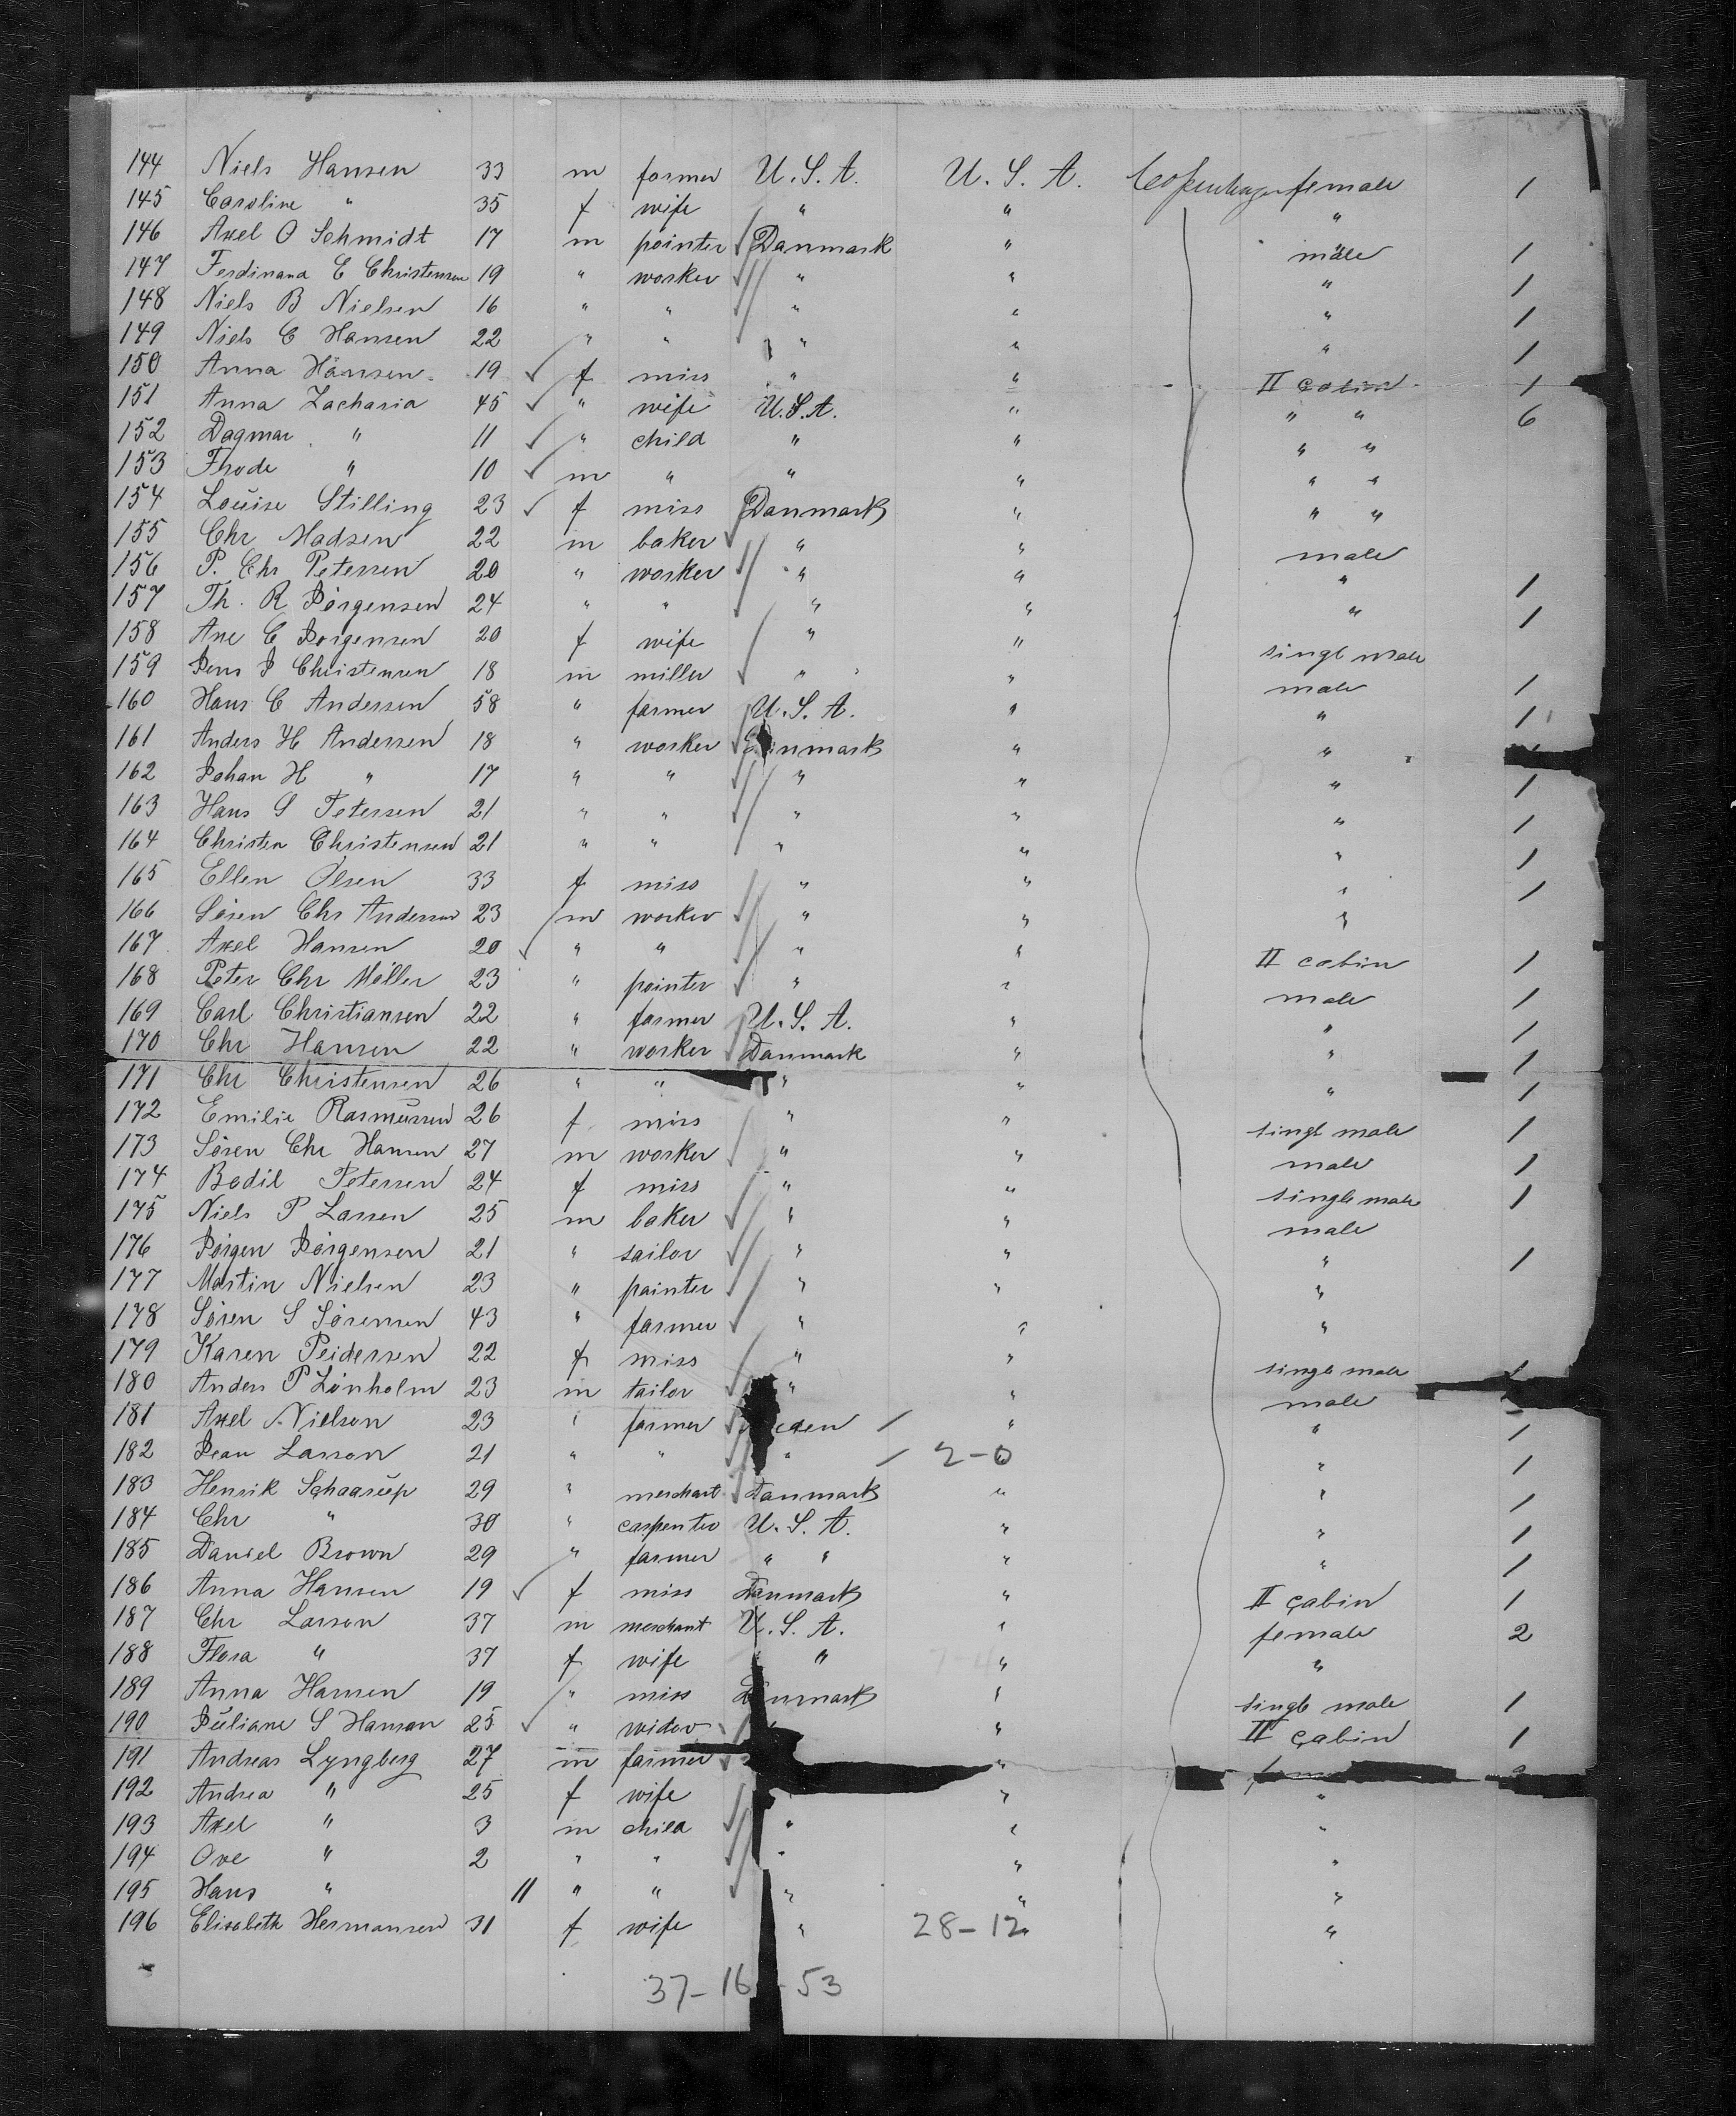 144 Niels Hansen 33 m farmer U.S.A. U.S.A. Copenhagen female 1
145 Caroline " 35 f wife " " "
146 Axel O Schmidt 17 m painter Danmark " male 1
147 Ferdinand C Christensen 19 " worker " " " 1
148 Niels B Nielsen 16 " " " " " 1
149 Niels C Hansen 22 " " " " " 1
150 Anna Hansen 19 f miss " " II cabin 1
151 Anna Zacharia 45 " wife U.S.A. " " " 6
152 Dagmar " 11 " child " " " "
153 Frode " 10 m " " " " "
154 Louise Stilling 23 f miss Danmark " " "
155 Chr Madsen 22 m baker " " male
156 P. Chr Petersen 20 " worker " " " 1
157 Th. R Jörgensen 24 " " " " " 1
158 Ane C Jorgensen 20 f wife " " singl male
159 Jens J Christensen 18 m miller " " male 1
160 Hans C Andersen 58 " farmer U.S.A. " " 1
161 Anders H Andersen 18 " worker nmark " "
162 Johan H " 17 " " " " " 1
163 Hans S Petersen 21 " " " " " 1
164 Christen Christensen 21 " " " " " 1
165 Ellen Olsen 33 f miss " " " 1
166 Sören Chr Andersen 23 m worker " " "
167 Axel Hansen 20 " " " " II cabin 1
168 Peter Chr Möller 23 " painter " " male 1
169 Carl Christiansen 22 " farmer U.S.A. " " 1
170 Chr Hansen 22 " worker Danmark " " 1
171 Chr Christensen 26 " " " " " 1
172 Emilie Rasmussen 26 f miss " " singl male 1
173 Sören Chr Hansen 27 m worker " " male 1
174 Bodil Petersen 24 f miss " " single male 1
175 Niels P Larsen 25 m baker " " male
176 Jörgen Jörgensen 21 " sailor " " " 1
177 Martin Nielsen 23 " painter " " "
178 Sören S Sörensen 43 " farmer " " "
179 Karen Peidersen 22 f miss " " singl male
180 Anders P Lönholm 23 m tailor " " male
181 Axel Nielson 23 " farmer eden / " " 1
182 Jean Larson 21 " " " / 2-0 " 1
183 Henrik Schaarup 29 " merchant Danmark " " 1
184 Chr " 30 " carpenter U.S.A. " " 1
185 Daniel Brown 29 " farmer " " " " 1
186 Anna Hansen 19 f miss Danmark " II cabin 1
187 Chr Larson 37 m merchant U.S.A. " female 2
188 Flora " 37 f wife " " "
189 Anna Hansen 19 " miss D nmark " single male 1
190 Juliane S Hansen 25 " widow " II cabin 1
191 Andreas Lyngberg 27 m farmer "
192 Andrea " 25 f wife " " "
193 Axel " 3 m child " " "
194 Ove " 2 " " " " "
195 Hans " 11 " " " " "
196 Elisabeth Hermansen 31 f wife " 28-12 "
37-16-53